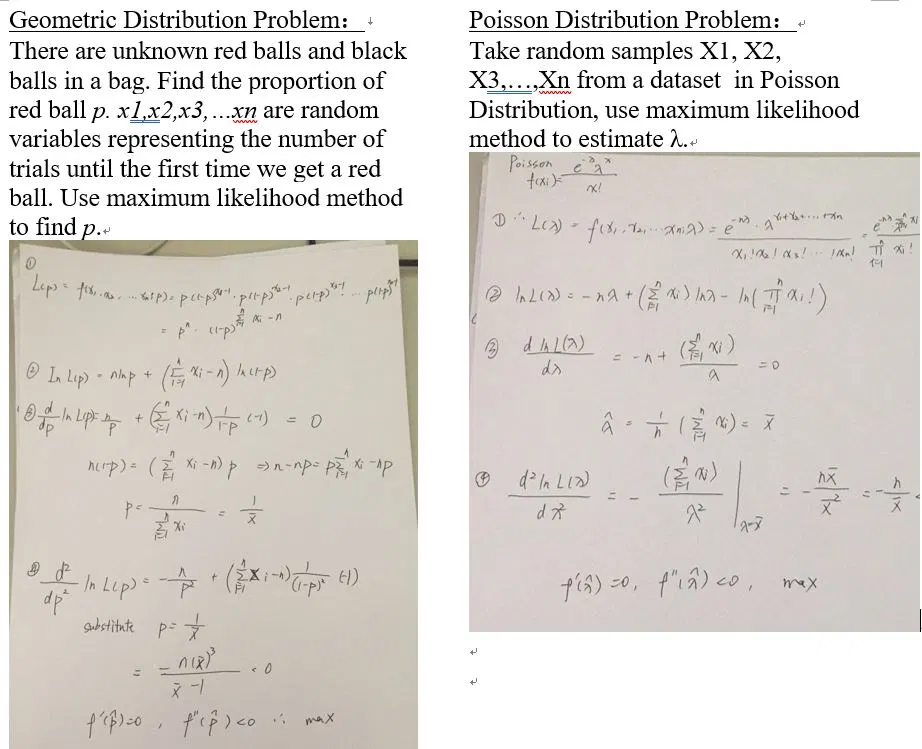 Geometric Distribution Problem:
There are unknown red balls and black
balls in a bag. Find the proportion of
red ball p. x1,x2,x3,…xn are random
variables representing the number of
trials until the first time we get a red
ball. Use maximum likelihood method
to find p.
①
L(p) = f(x₁, x₂, ... xn; p) = p(1-p)^(x₁-1) · p(1-p)^(x₂-1) · p(1-p)^(x₃-1) ... p(1-p)^(xn-1)
= pⁿ · (1-p)^(Σ_{i=1}^n xi - n)
② In L(p) = n ln p + (Σ_{i=1}^n xi - n) ln(1-p)
③ d/dp ln L(p) = n/p + (Σ_{i=1}^n xi - n) 1/(1-p) (-1) = 0
n(1-p) = (Σ_{i=1}^n xi - n) p ⇒ n - np = p Σ_{i=1}^n xi - np
p = n / Σ_{i=1}^n xi = 1/x̄
④ d²/dp² ln L(p) = - n/p² + (Σ_{i=1}^n xi - n) 1/(1-p)² (-1)
substitute p = 1/x̄
= -n(x̄)³ / (x̄ - 1) < 0
f'(p̂) = 0, f''(p̂) < 0 ∴ max
Poisson Distribution Problem:
Take random samples X1, X2,
X3,…,Xn from a dataset in Poisson
Distribution, use maximum likelihood
method to estimate λ.
Poisson
f(xi) = e^(-λ) λ^x / x!
① ∴ L(λ) = f(x₁, x₂, ... xn; λ) = e^(-nλ) · λ^(x₁+x₂+...+xn) / x₁! x₂! x₃! ... xn! = e^(-nλ) λ^(Σ_{i=1}^n xi) / Π_{i=1}^n xi!
② ln L(λ) = -nλ + (Σ_{i=1}^n xi) ln λ - ln(Π_{i=1}^n xi!)
③ d ln L(λ) / dλ = -n + (Σ_{i=1}^n xi) / λ = 0
λ̂ = 1/n (Σ_{i=1}^n xi) = x̄
④ d² ln L(λ) / dλ² = - (Σ_{i=1}^n xi) / λ² |_{λ=x̄} = - nx̄ / x̄² = - n / x̄ <
f'(λ̂) = 0, f''(λ̂) < 0, max